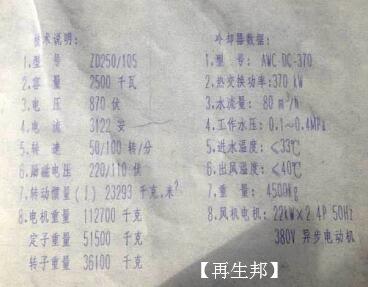 技术说明:
1.型 号 ZD250/105
2.容 量 2500 千瓦
3.电 压 870 伏
4.电 流 3122 安
5.转 速 50/100 转/分
6.励磁电压 220/110 伏
7.转动惯量(J) 23293 千克.米²
8.电机重量 112700 千克
定子重量 51500 千克
转子重量 36100 千克
冷却器数据:
1.型 号: AWC DC-370
2.热交换功率:370 kW
3.水流量: 80 m³/h
4.工作水压: 0.1~0.4MPa
5.进水温度: ≤33℃
6.出风温度: ≤40℃
7.重 量: 4500kg
8.风机电机: 22kW×2 4P 50Hz
380V 异步电动机
【再生邦】